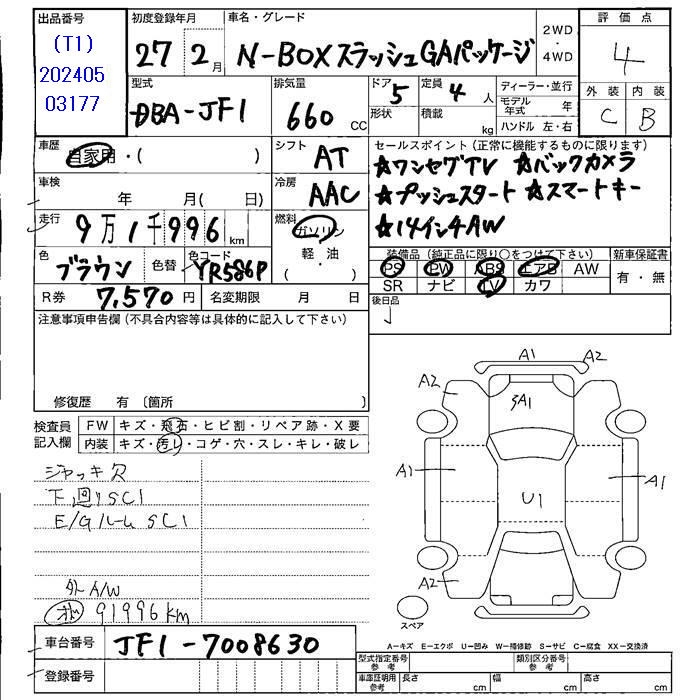 出品番号
(T1)
202405
03177
初度登録年月
27 2月
車名・グレード
N-BOXスラッシュGAパッケージ
2WD
・
4WD
評価点
4
外装 内装
C B
型式
DBA-JF1
排気量
660 CC
ドア 5
形状
定員 4 人
積載 kg
ディーラー・並行
モデル年式 年
ハンドル 左・右
車歴
自家用・( )
シフト
AT
セールスポイント(正常に機能するものに限ります)
☆ワンセグTV ☆バックカメラ
☆プッシュスタート ☆スマートキー
☆14インチAW
車検
年 月( 日)
冷房
AAC
走行
9万1千996km
燃料
ガソリン
軽・油
( )
色
ブラウン
色替
色コード
YR586P
装備品(純正品に限り○をつけて下さい)
PS PW ABS エアB AW
SR ナビ TV カワ
新車保証書
有・無
R券 7,570円
名変期限 月 日
後日品
注意事項申告欄(不具合内容等は具体的に記入して下さい)
修復歴 有 〔箇所 〕
検査員
記入欄
FW キズ・飛石・ヒビ割・リペア跡・X要
内装 キズ・汚レ・コゲ・穴・スレ・キレ・破レ
ジャッキ欠
下回りSC1
E/GルームSC1
外A/W
91996km
A1 A2
A2
A1
A1 U1 A1
A2
スペア
A-キズ E-エクボ U-凹み W-補修跡 S-サビ C-腐食 XX-交換済
車台番号 JF1-7008630
登録番号
型式指定番号
参考
類別区分番号
参考
車庫証明用
参考
長さ cm 幅 cm 高さ cm